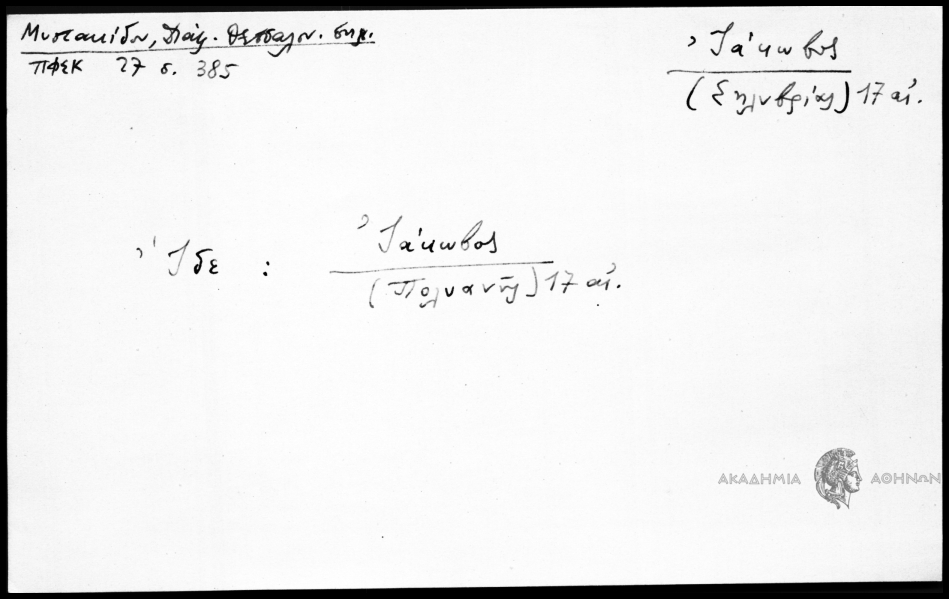 Μυστακίδου, Πάτρ. Θεσσαλον. σημ.
ΠΦΣΚ 27 σ. 385
Ἰάκωβος
(Σηλυβρίας) 17 αἰ.
Ἴδε : Ἰάκωβος
(Πολυανῆς) 17 αἰ.
ΑΚΑΔΗΜΙΑ ΑΘΗΝΩΝ